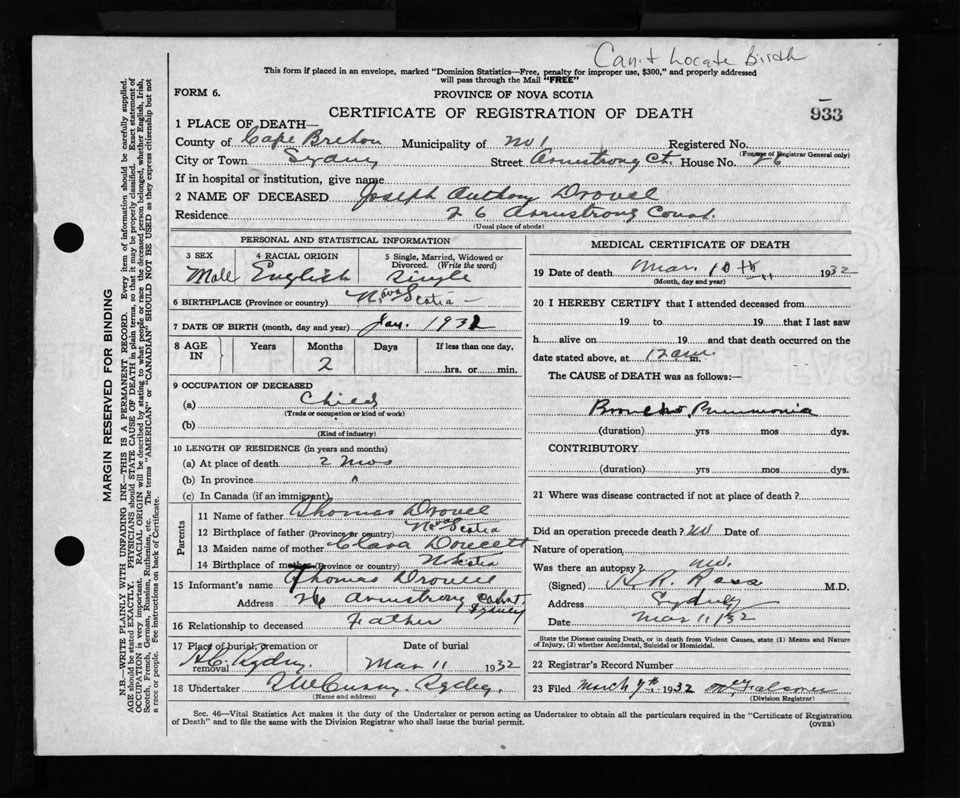 Can't Locate Birth
This form if placed in an envelope, marked "Dominion Statistics—Free, penalty for improper use, $300," and properly addressed
will pass through the Mail "FREE"
FORM 6.
PROVINCE OF NOVA SCOTIA
CERTIFICATE OF REGISTRATION OF DEATH
933
1 PLACE OF DEATH—
County of Cape Breton Municipality of No 1 Registered No.
(For use of Registrar General only)
City or Town Sydney Street Armstrong Ct. House No. 26
If in hospital or institution, give name
2 NAME OF DECEASED Joseph Anthony Drovel
Residence 26 Armstrong Court.
(Usual place of abode)
PERSONAL AND STATISTICAL INFORMATION
3 SEX Male
4 RACIAL ORIGIN English
5 Single, Married, Widowed or
Divorced. (Write the word)
Single
6 BIRTHPLACE (Province or country) Nova Scotia
7 DATE OF BIRTH (month, day and year) Jan. 1932
8 AGE IN Years Months Days If less than one day,
2 hrs. or min.
9 OCCUPATION OF DECEASED
(a) Child
(Trade or occupation or kind of work)
(b)
(Kind of industry)
10 LENGTH OF RESIDENCE (in years and months)
(a) At place of death 2 mos
(b) In province "
(c) In Canada (if an immigrant)
Parents
11 Name of father Thomas Drovel
12 Birthplace of father (Province or country) Nova Scotia
13 Maiden name of mother Clara Doucett
14 Birthplace of mother (Province or country) N Scotia
15 Informant's name Thomas Drovel
Address 26 Armstrong Court Sydney
16 Relationship to deceased Father
17 Place of burial, cremation or
removal Sydney.
Date of burial
Mar 11 1932
18 Undertaker Sydney.
(Name and address)
MEDICAL CERTIFICATE OF DEATH
19 Date of death Mar 10th 1932
(Month, day and year)
20 I HEREBY CERTIFY that I attended deceased from
19 to 19 that I last saw
h alive on 19 and that death occurred on the
date stated above, at 12 am m.
The CAUSE of DEATH was as follows:—
Broncho Pneumonia
(duration) yrs mos dys.
CONTRIBUTORY
(duration) yrs mos dys.
21 Where was disease contracted if not at place of death?
Did an operation precede death? No Date of
Nature of operation
Was there an autopsy? No.
(Signed) H. R. Ross M.D.
Address Sydney
Date Mar 11/32
State the Disease causing Death, or in death from Violent Causes, state (1) Means and Nature
of Injury, (2) whether Accidental, Suicidal or Homicidal.
22 Registrar's Record Number
23 Filed March 1932
(Division Registrar)
Sec. 46—Vital Statistics Act makes it the duty of the Undertaker or person acting as Undertaker to obtain all the particulars required in the "Certificate of Registration
of Death" and to file the same with the Division Registrar who shall issue the burial permit.
(OVER)
MARGIN RESERVED FOR BINDING
N.B.—WRITE PLAINLY WITH UNFADING INK—THIS IS A PERMANENT RECORD. Every item of information should be carefully supplied.
AGE should be stated EXACTLY. PHYSICIANS should STATE CAUSE OF DEATH in plain terms, so that it may be properly classified. Exact statement of
OCCUPATION is very important. RACIAL ORIGIN will be described by stating to what people or race the deceased person belonged, whether English, Irish,
Scotch, French, German, Russian, Ruthenian, etc. The terms "AMERICAN" or "CANADIAN" SHOULD NOT BE USED as they express citizenship but not
a race or people. See instructions on back of Certificate.